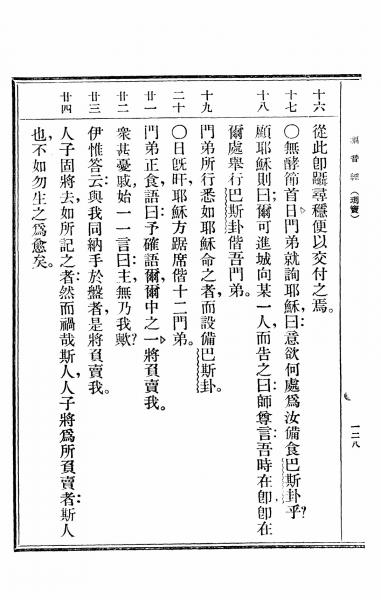 福音經（瑪竇）
一二八
十六
從此卽躡尋穩便以交付之焉。
十七
〇無酵節首日門弟就詢耶穌曰意欲何處爲汝備食巴斯卦乎?
十八
顧耶穌則曰爾可進城向某一人,而吿之曰師尊言吾時在卽卽在
爾處舉行巴斯卦偕吾門弟。
十九
門弟所行悉如耶穌命之者而設備巴斯卦。
二十
〇日旣旰,耶穌方踞席偕十二門弟。
廿一
門弟正食語曰予確語爾,爾中之一將負賣我。
廿二
衆甚憂戚始一一言曰主,無乃我歟?
廿三
伊惟答云與我同納手於盤者是將負賣我。
廿四
人子固將去,如所記之者然而禍哉斯人,人子將爲所負賣者斯人
也不如勿生之爲愈矣。